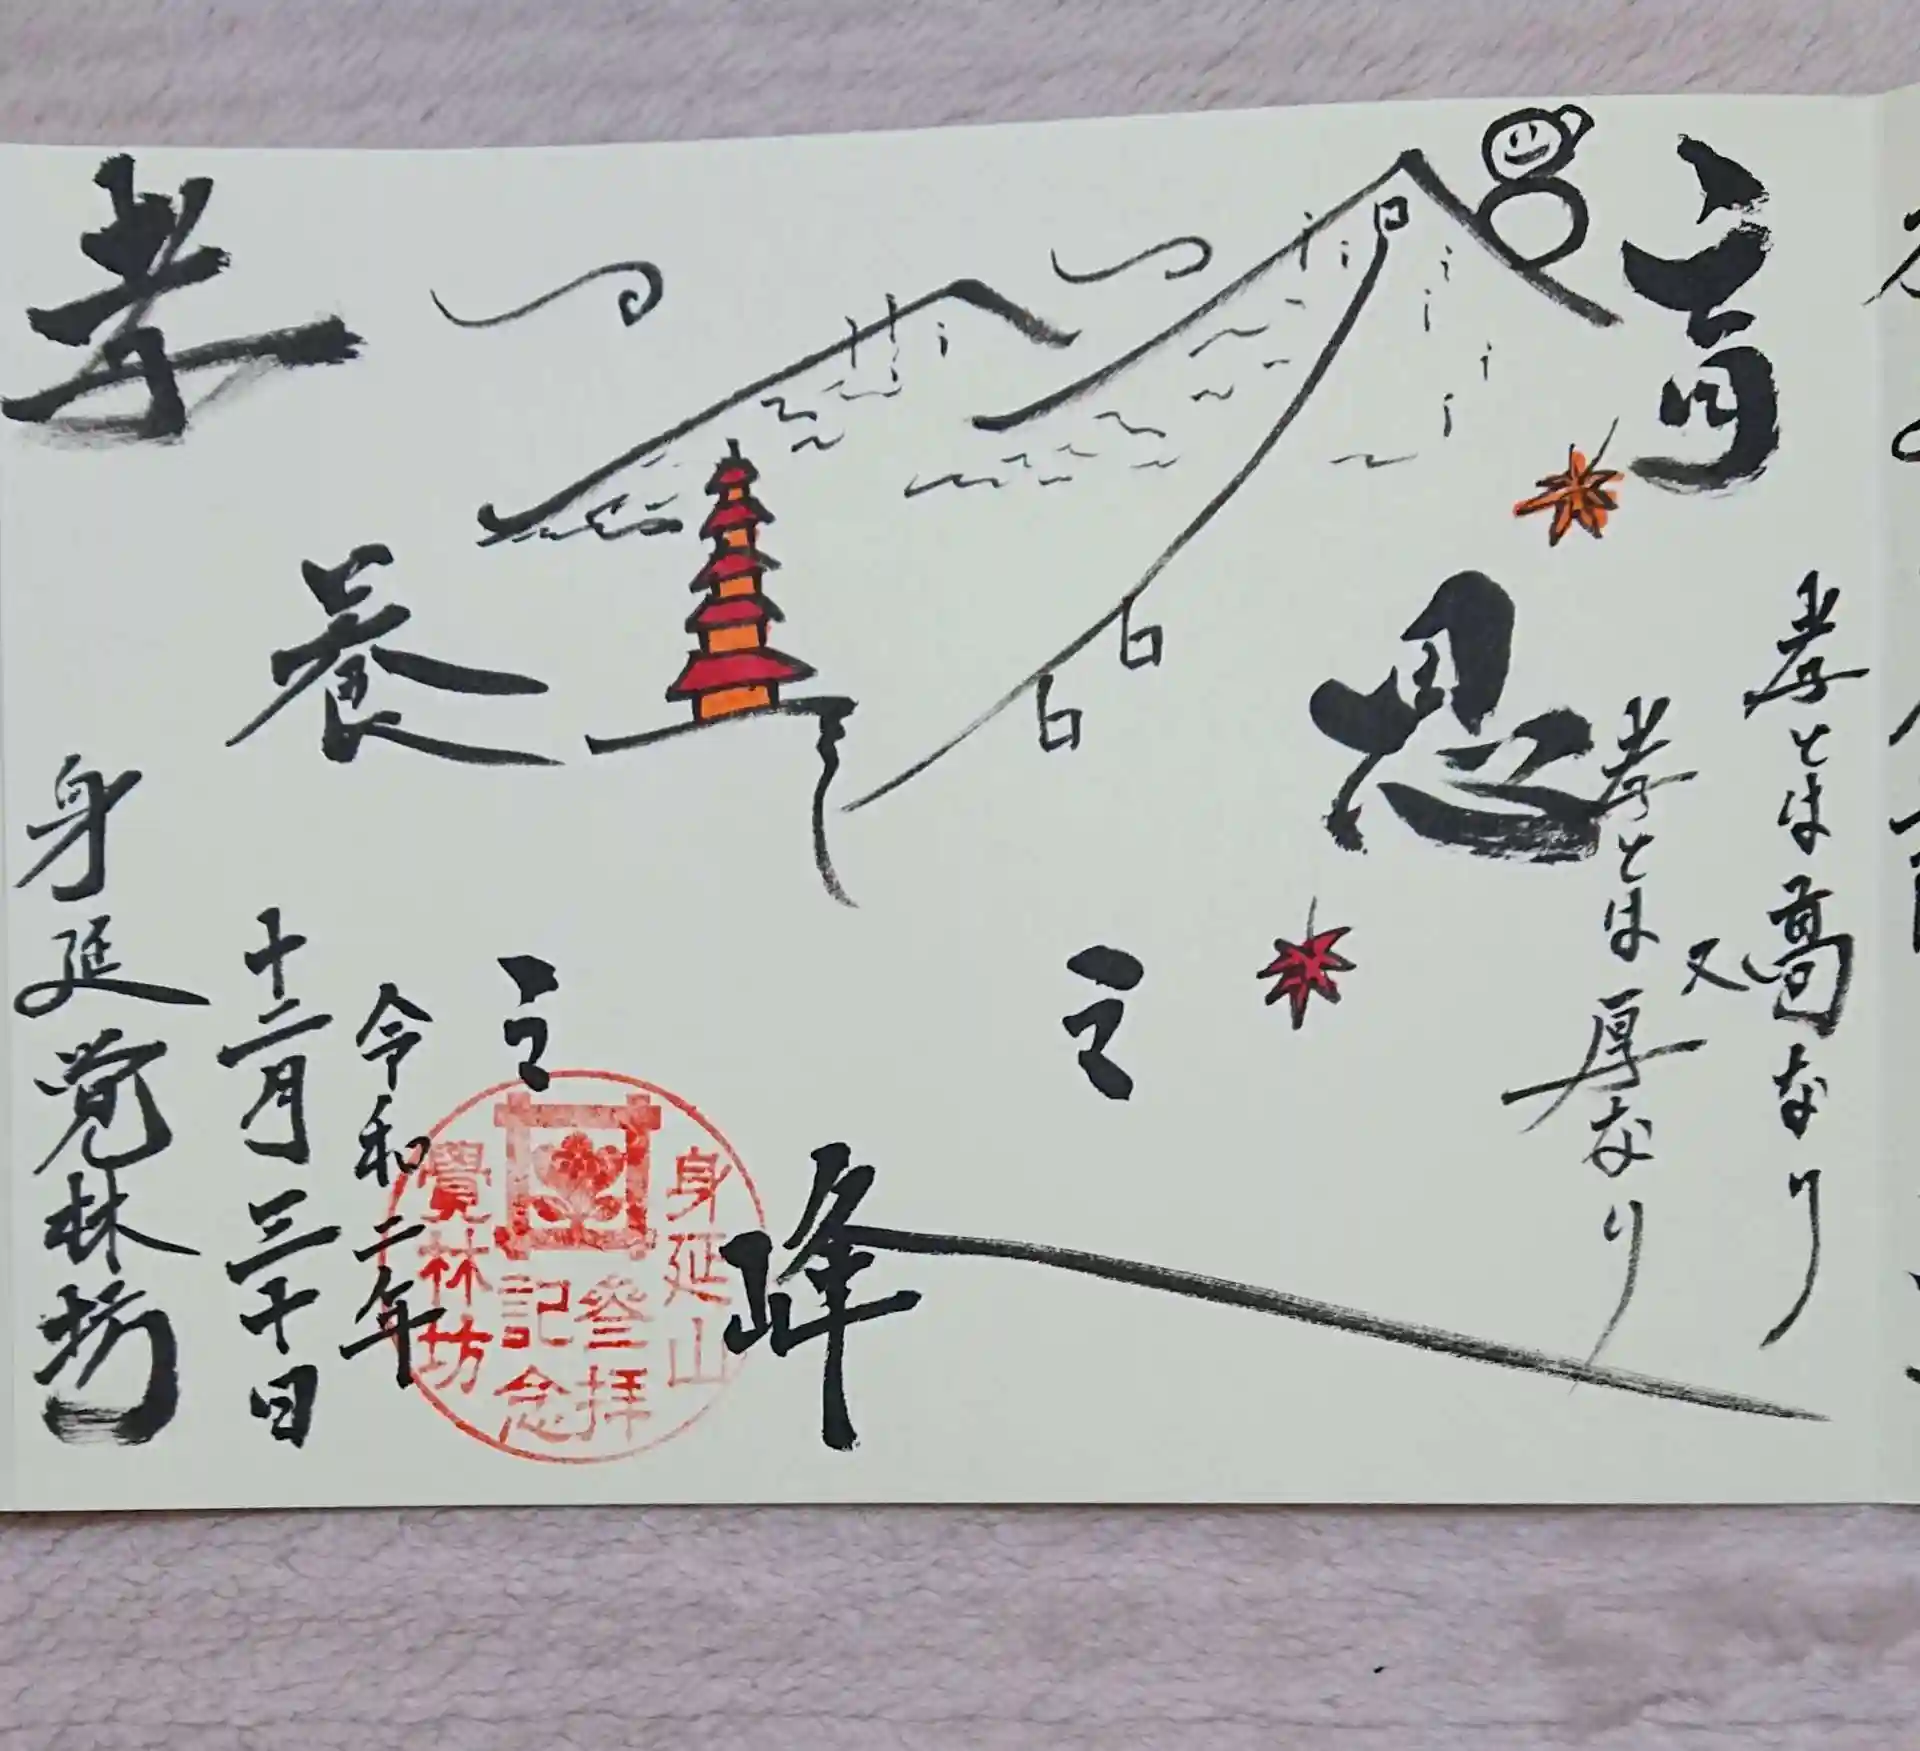 育
恩
孝とは高なり
又
孝とは厚なり
之
峰
之
孝
養
令和二年
十二月三十日
身延覚林坊
身延山
參拝
記念
覺林坊